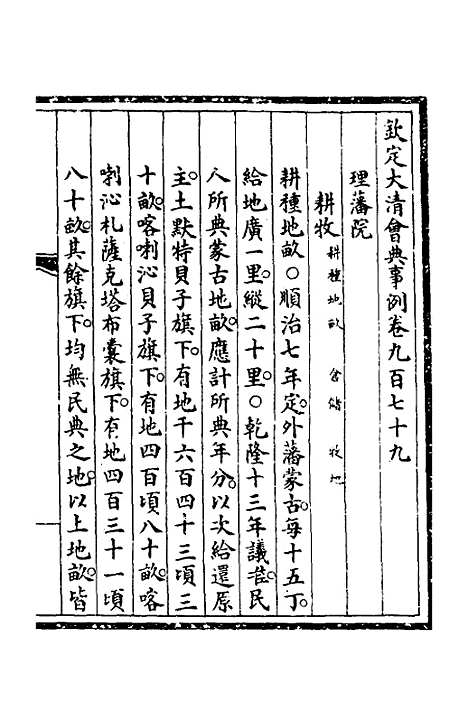 欽定大清會典事例卷九百七十九
理藩院
耕牧 耕種地畝 倉儲 牧地
耕種地畝〇順治七年定。外藩蒙古。每十五丁。
給地廣一里。縱二十里。〇乾隆十三年議准。民
人所典蒙古地畝。應計所典年分。以次給還原
主。土默特貝子旗下。有地千六百四十三頃三
十畝。喀喇沁貝子旗下。有地四百頃八十畝。喀
喇沁札薩克塔布囊旗下。有地四百三十一頃
八十畝。其餘旗下。均無民典之地。以上地畝。皆